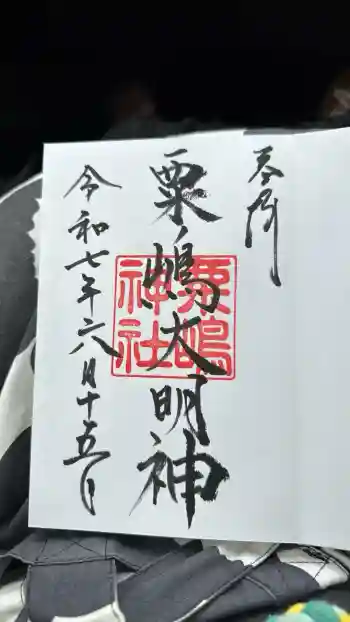 奉拝
粟嶋大明神
粟嶋神社
令和七年六月十五日